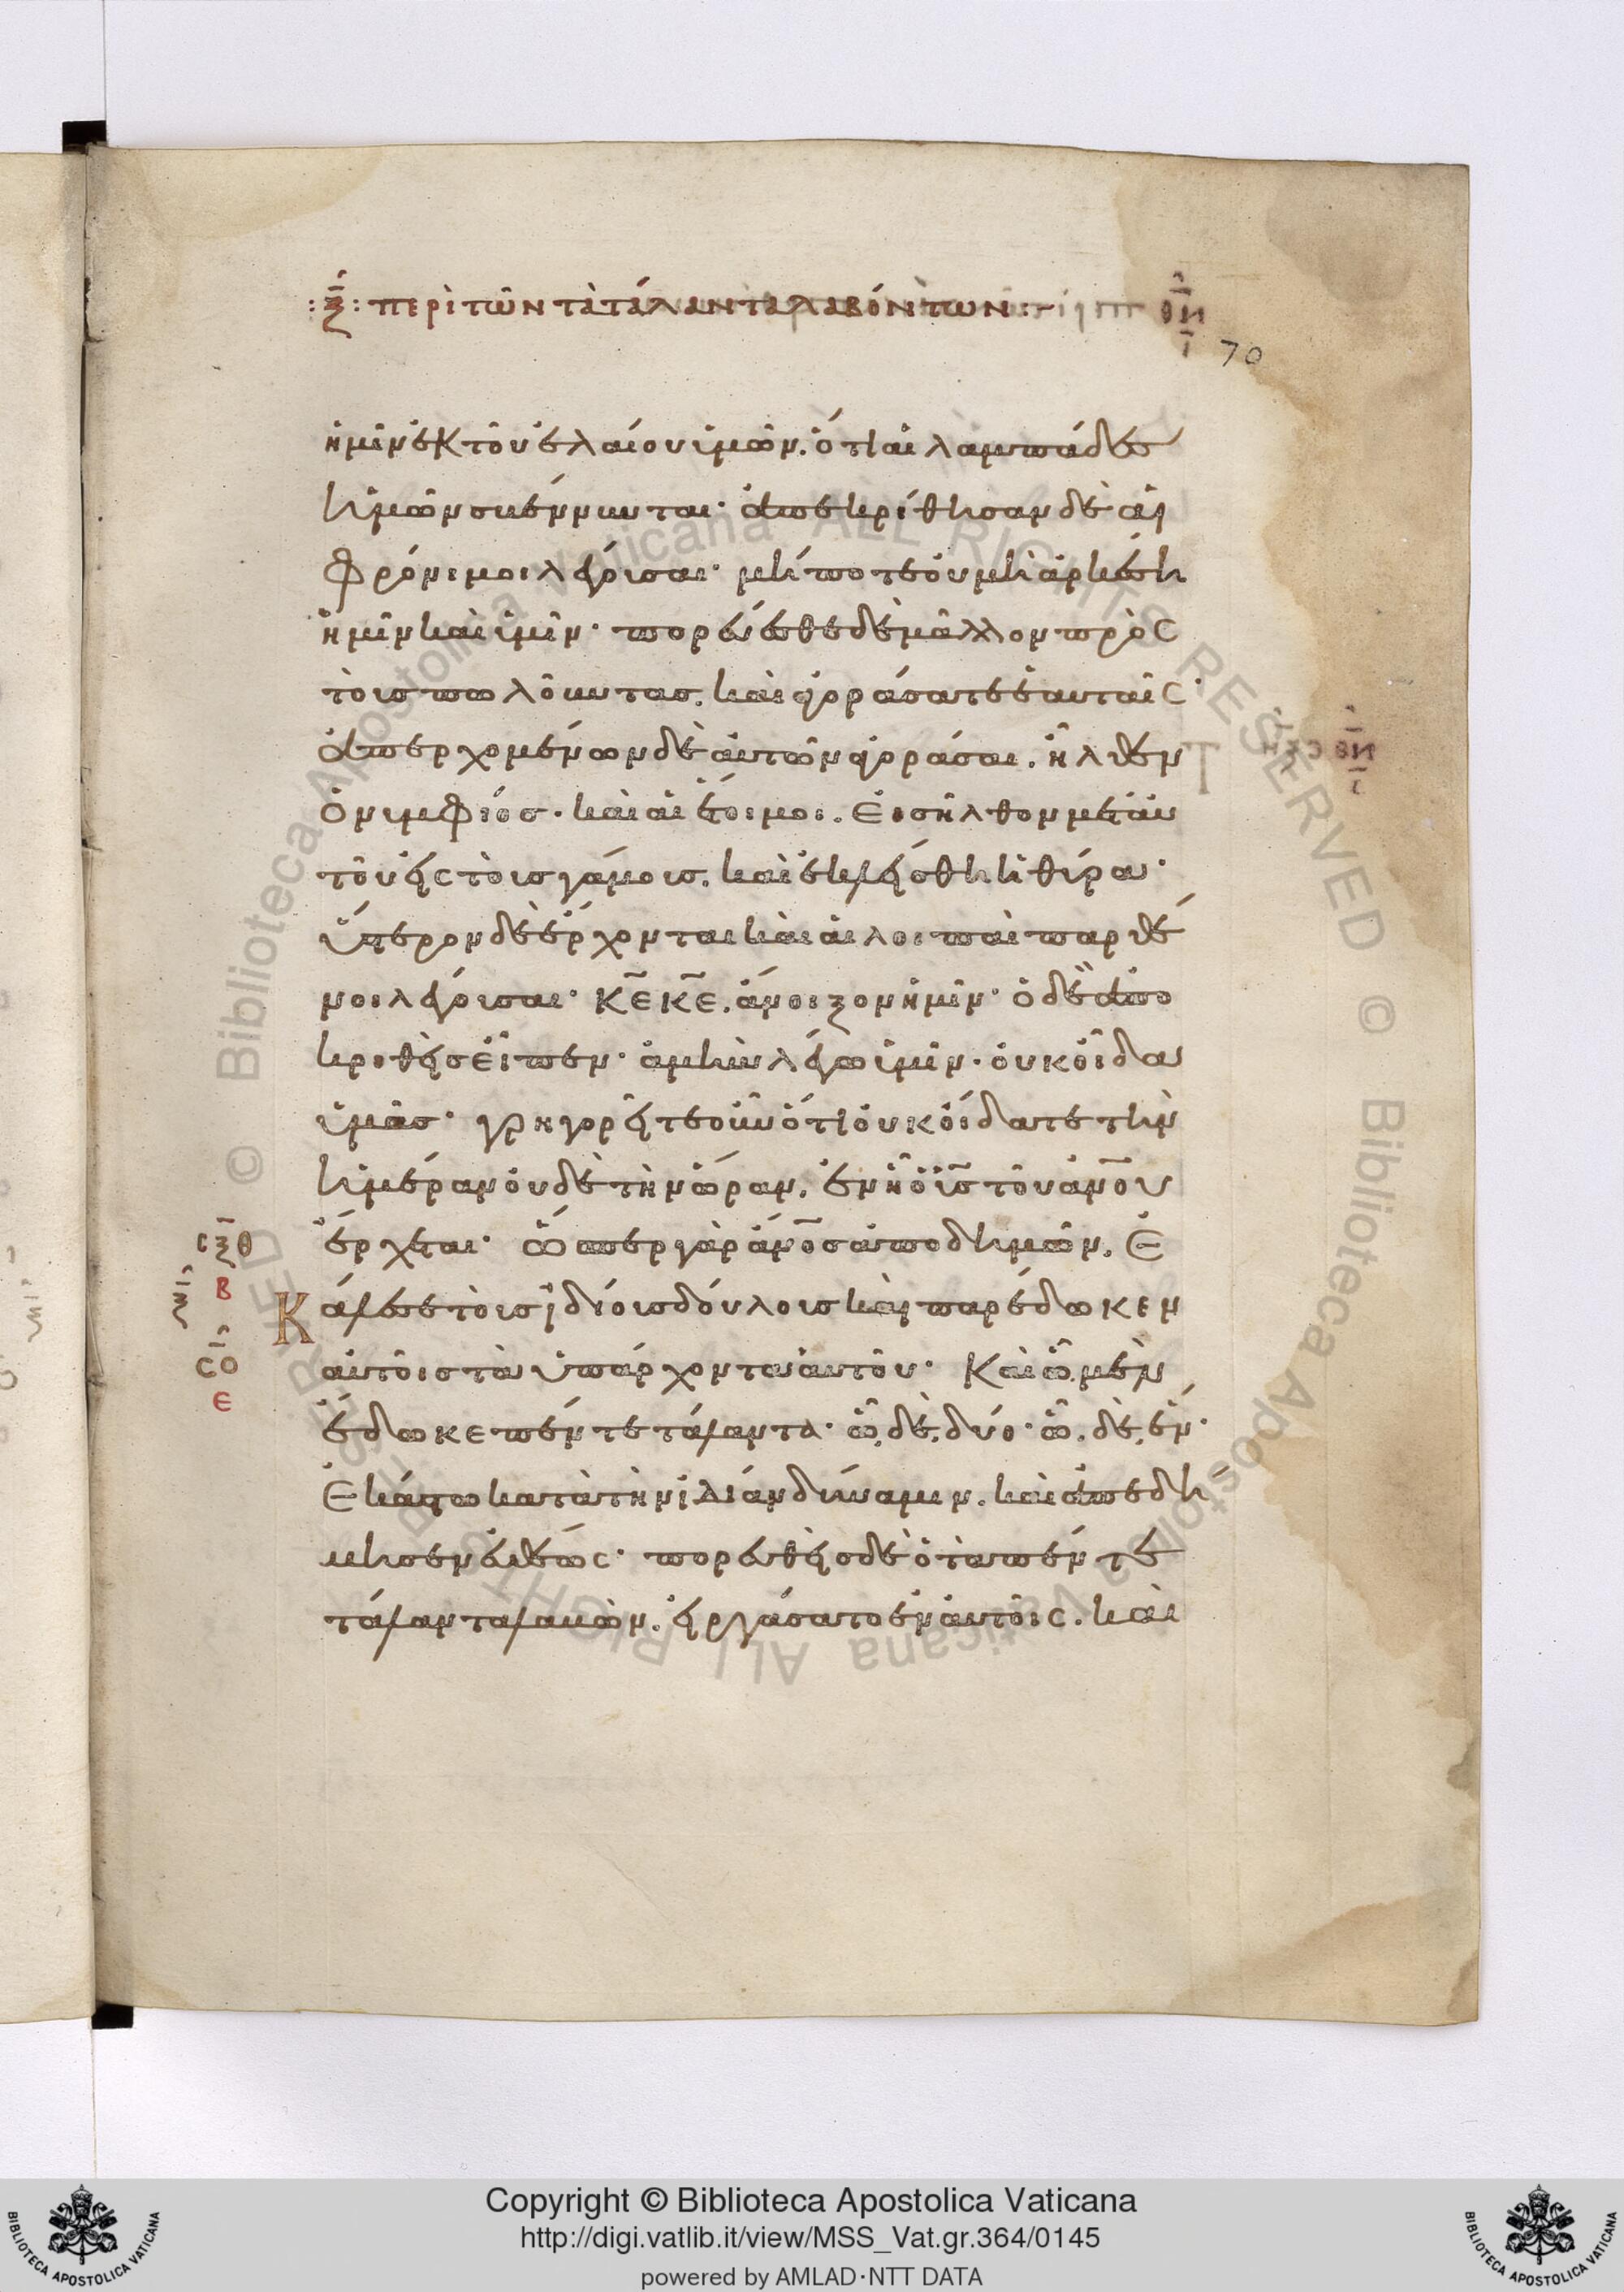 :ξ: περὶ τῶν τὰ τάλαντα λαβόντων:
70
ἡμῖν ἐκ τοῦ ἐλαίου ὑμῶν. ὅτι αἱ λαμπάδες
ἡμῶν σβέννυνται· ἀπεκρίθησαν δὲ αἱ
φρόνιμοι λέγουσαι· μήποτε οὐ μὴ ἀρκέσῃ
ἡμῖν καὶ ὑμῖν· πορεύεσθε δὲ μᾶλλον πρὸς
τοὺς πωλοῦντας. καὶ ἀγοράσατε ἑαυταῖς·
ἀπερχομένων δὲ αὐτῶν ἀγοράσαι. ἦλθεν
ὁ νυμφίος· καὶ αἱ ἕτοιμοι. εἰσῆλθον μετ' αὐ
τοῦ εἰς τοὺς γάμους. καὶ ἐκλείσθη ἡ θύρα·
ὕστερον δὲ ἔρχονται καὶ αἱ λοιπαὶ παρθέ
νοι λέγουσαι· κε κε. ἄνοιξον ἡμῖν· ὁ δὲ ἀπο
κριθεὶς εἶπεν· ἀμὴν λέγω ὑμῖν· οὐκ οἶδα
ὑμᾶς· γρηγορεῖτε οὖν ὅτι οὐκ οἴδατε τὴν
ἡμέραν οὐδὲ τὴν ὥραν. ἐν ᾗ ὁ υς τοῦ ανου
ἔρχεται· ὥσπερ γὰρ ανος ἀποδημῶν. ἐ
κάλεσε τοὺς ἰδίους δούλους καὶ παρέδωκεν
αὐτοῖς τὰ ὑπάρχοντα αὐτοῦ· Καὶ ᾧ μὲν
ἔδωκε πέντε τάλαντα· ᾧ δὲ, δύο· ᾧ δὲ, ἕν·
Ἑκάστω κατὰ τὴν ἰδίαν δύναμιν. καὶ ἀπεδή
μησεν εὐθέως· πορευθεὶς δὲ ὁ τὰ πέντε
τάλαντα λαβὼν. εἰργάσατο ἐν αὐτοῖς. καὶ
σξθ
β
ξ
σο
ε
Copyright © Biblioteca Apostolica Vaticana
http://digi.vatlib.it/view/MSS_Vat.gr.364/0145
powered by AMLAD·NTT DATA
BIBLIOTECA APOSTOLICA VATICANA
BIBLIOTECA APOSTOLICA VATICANA
© Biblioteca Apostolica Vaticana ALL RIGHTS RESERVED © Biblioteca Apostolica Vaticana ALL RIGHTS RESERVED